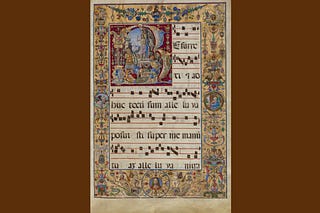 Esurre
xi et ad
huc tecum sum alle lu ya
posui sti super me manum
tu am alle lu ya mira